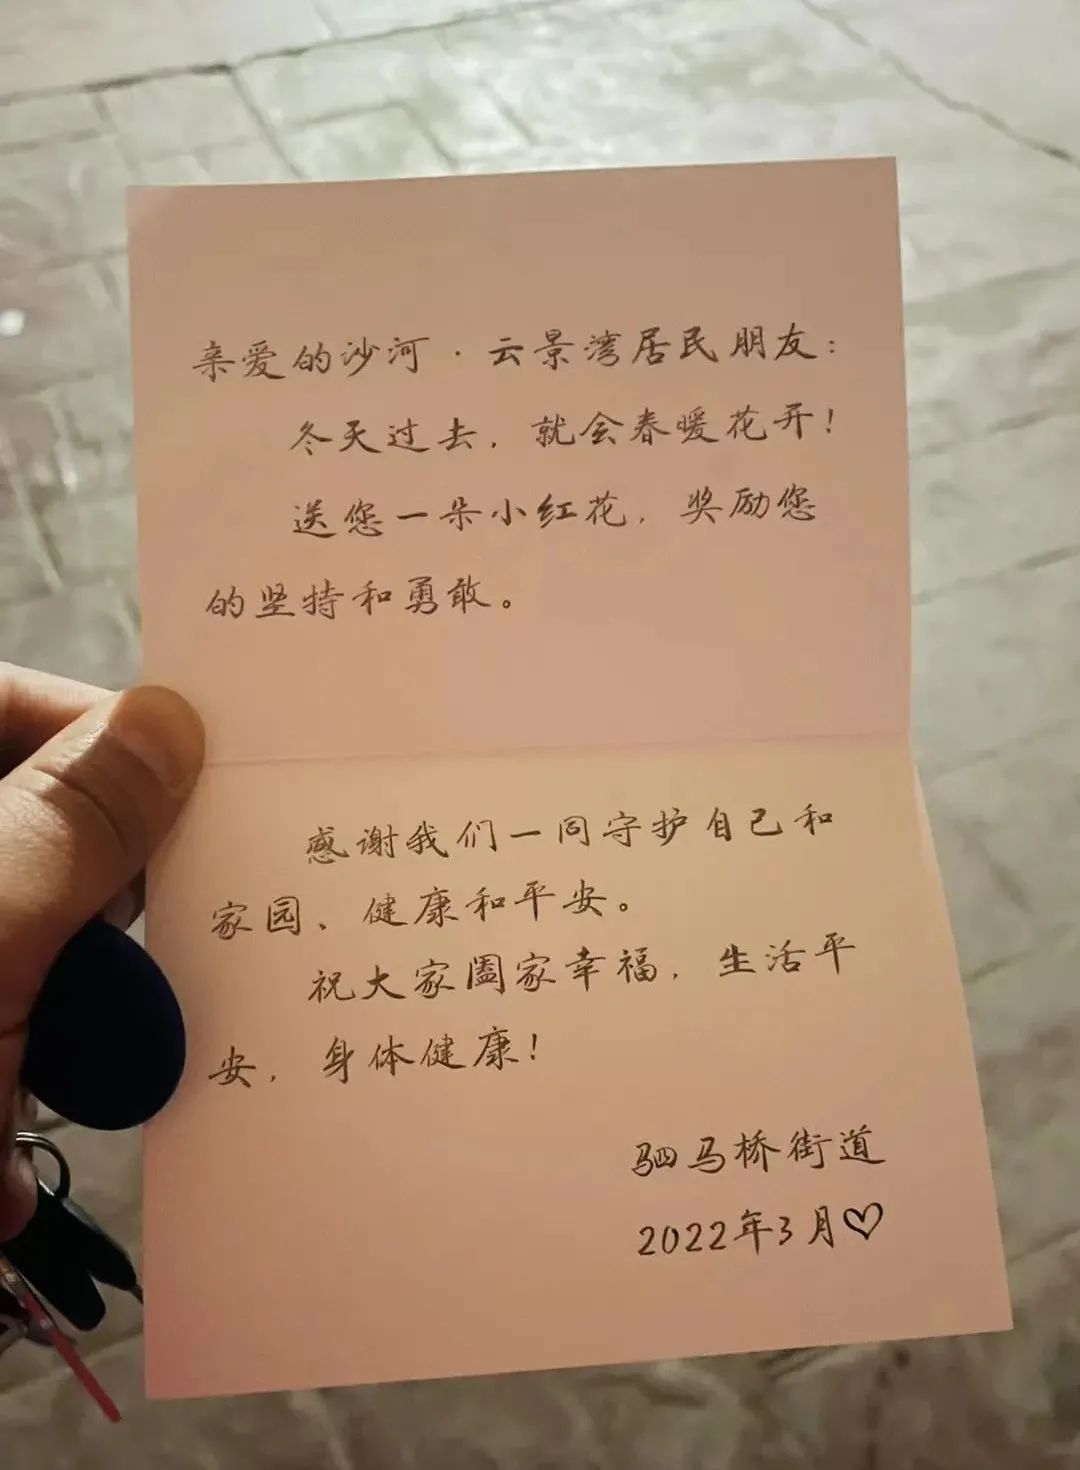 亲爱的沙河·云景湾居民朋友：
冬天过去，就会春暖花开！
送您一朵小红花，奖励您
的坚持和勇敢。
感谢我们一同守护自己和
家园、健康和平安。
祝大家阖家幸福，生活平
安，身体健康！
驷马桥街道
2022年3月♡